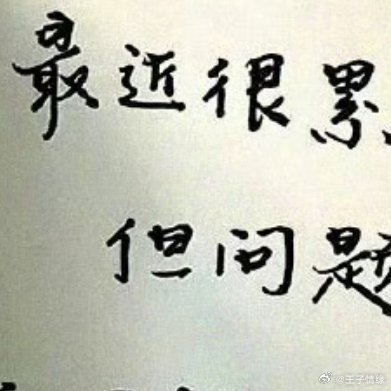 最近很累
但问题
@王子情缘